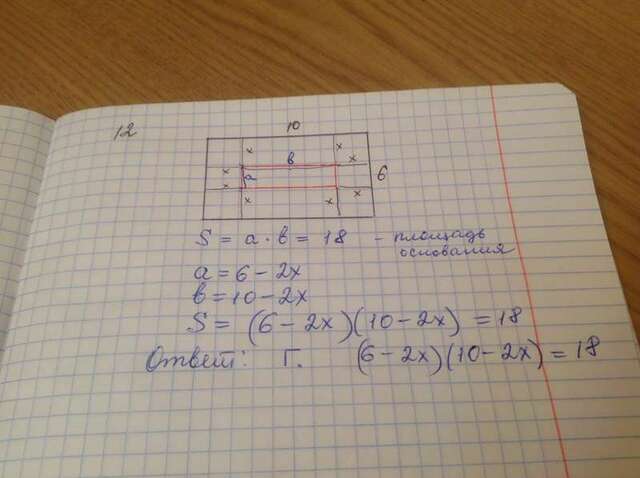 12
10
x x
в x
x
а 6
x
x x x
S = а · в = 18 - площадь
основания
а = 6 - 2x
в = 10 - 2x
S = (6 - 2x)(10 - 2x) = 18
Ответ: Г. (6 - 2x)(10 - 2x) = 18